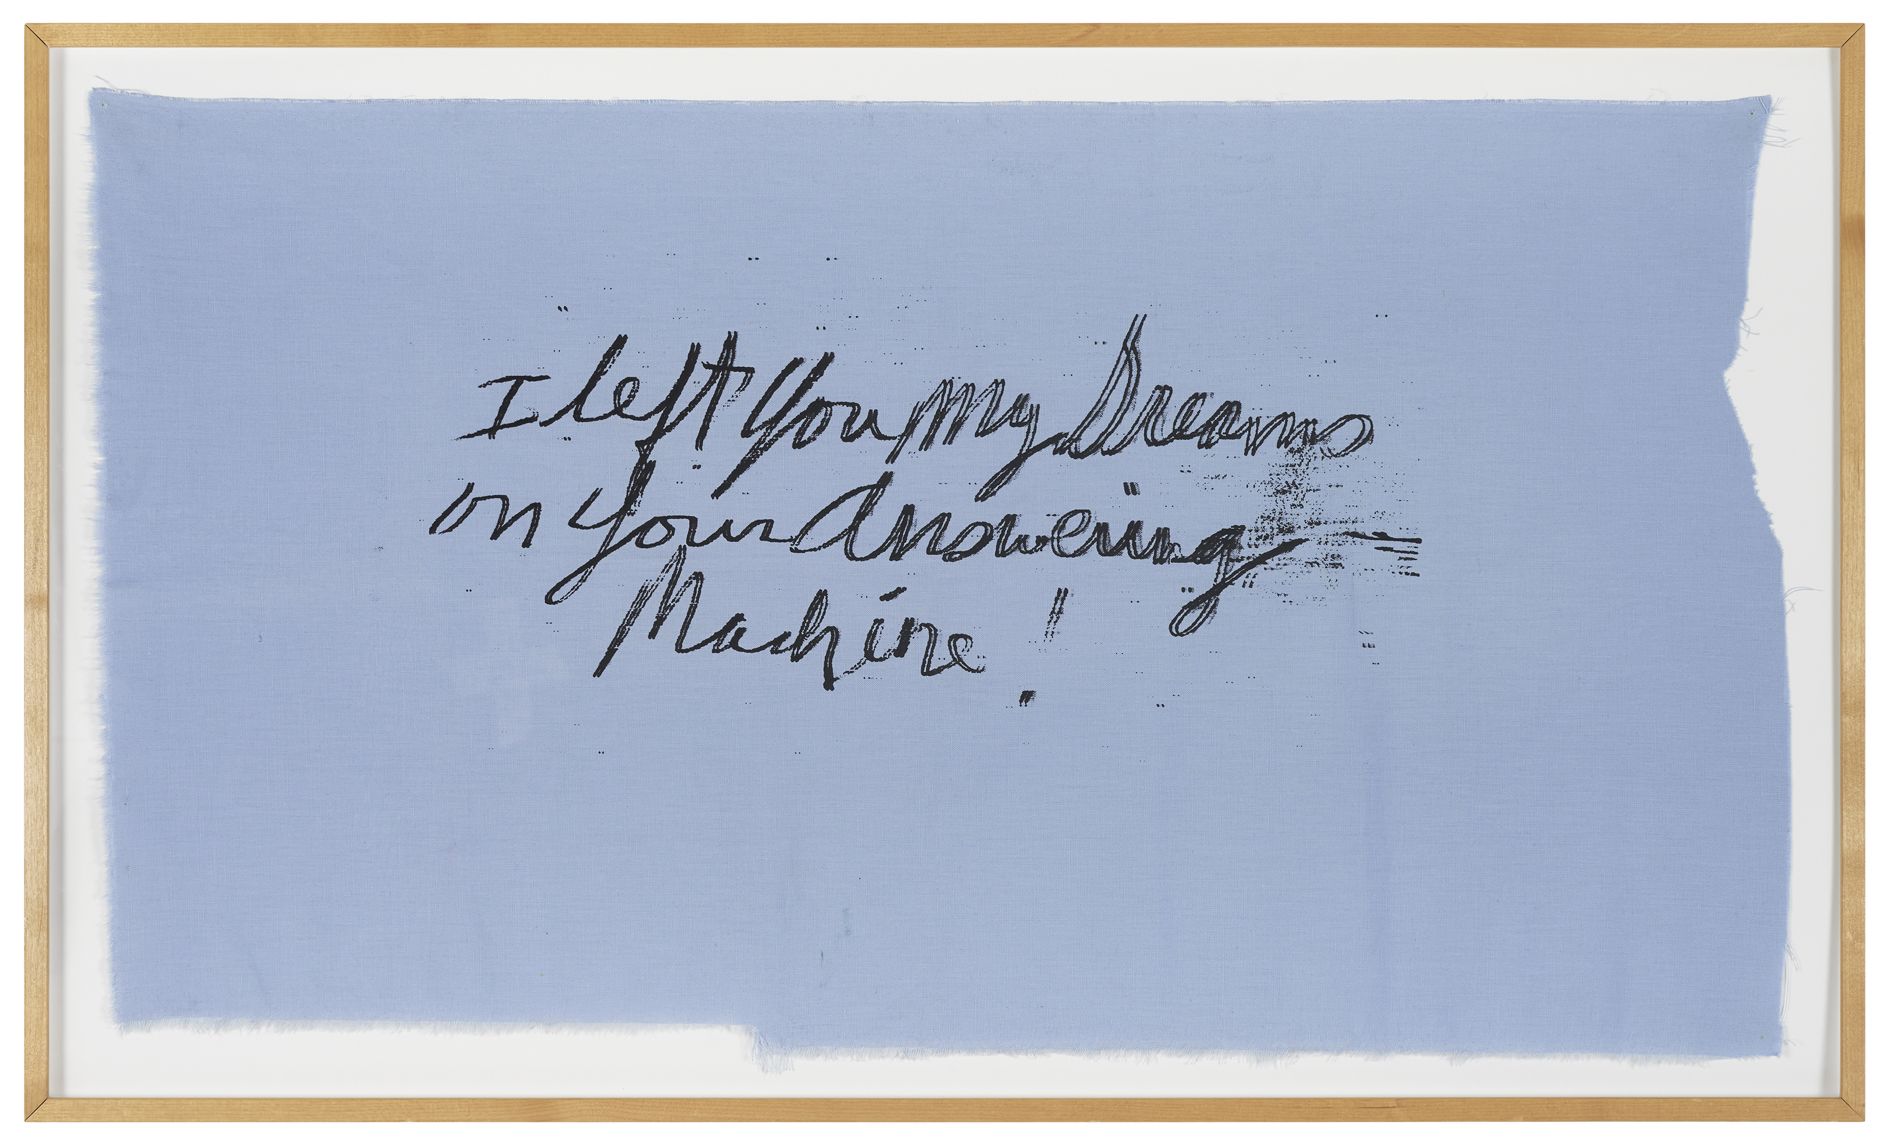 I left You my Dreams
on Your Answering
Machine!